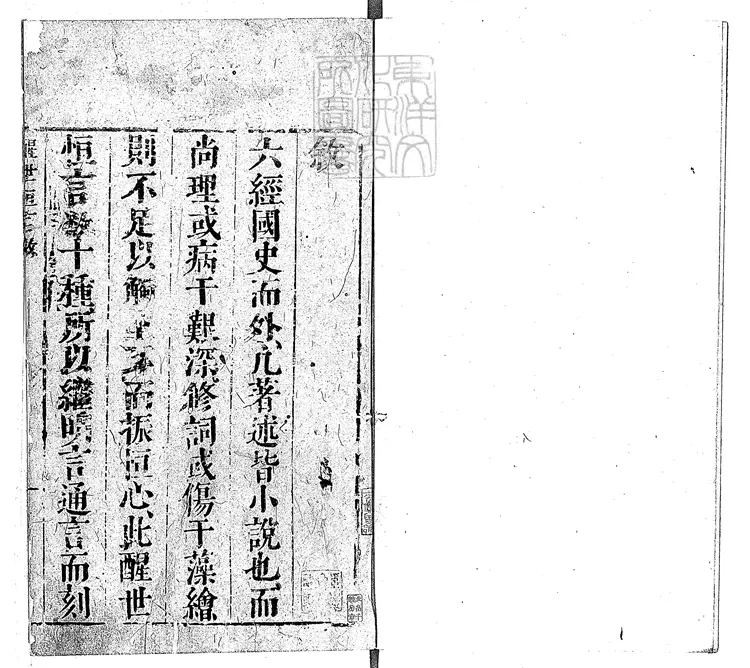 東洋文
化研究
所圖書
敘
六經國史而外凡著述皆小說也而
尚理或病于艱深修詞或傷于藻繪
則不足以觸而振恒心此醒世
恒言十種所以繼明言通言而刻
醒世恒言敘